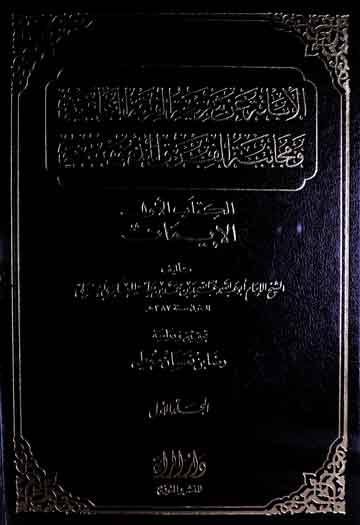 الإبانة عن شريعة الفرقة الناجية
ومجانبة الفرق المذمومة
الكتاب الأول
الإيمان
تأليف
الشيخ الإمام أبي عبد الله عبيد الله بن محمد بن بطة العكبري
المتوفى سنة ٣٨٧هـ
تحقيق ودراسة
رضا بن نعسان معطي
المجلد الأول
دار الراية
للنشر والتوزيع